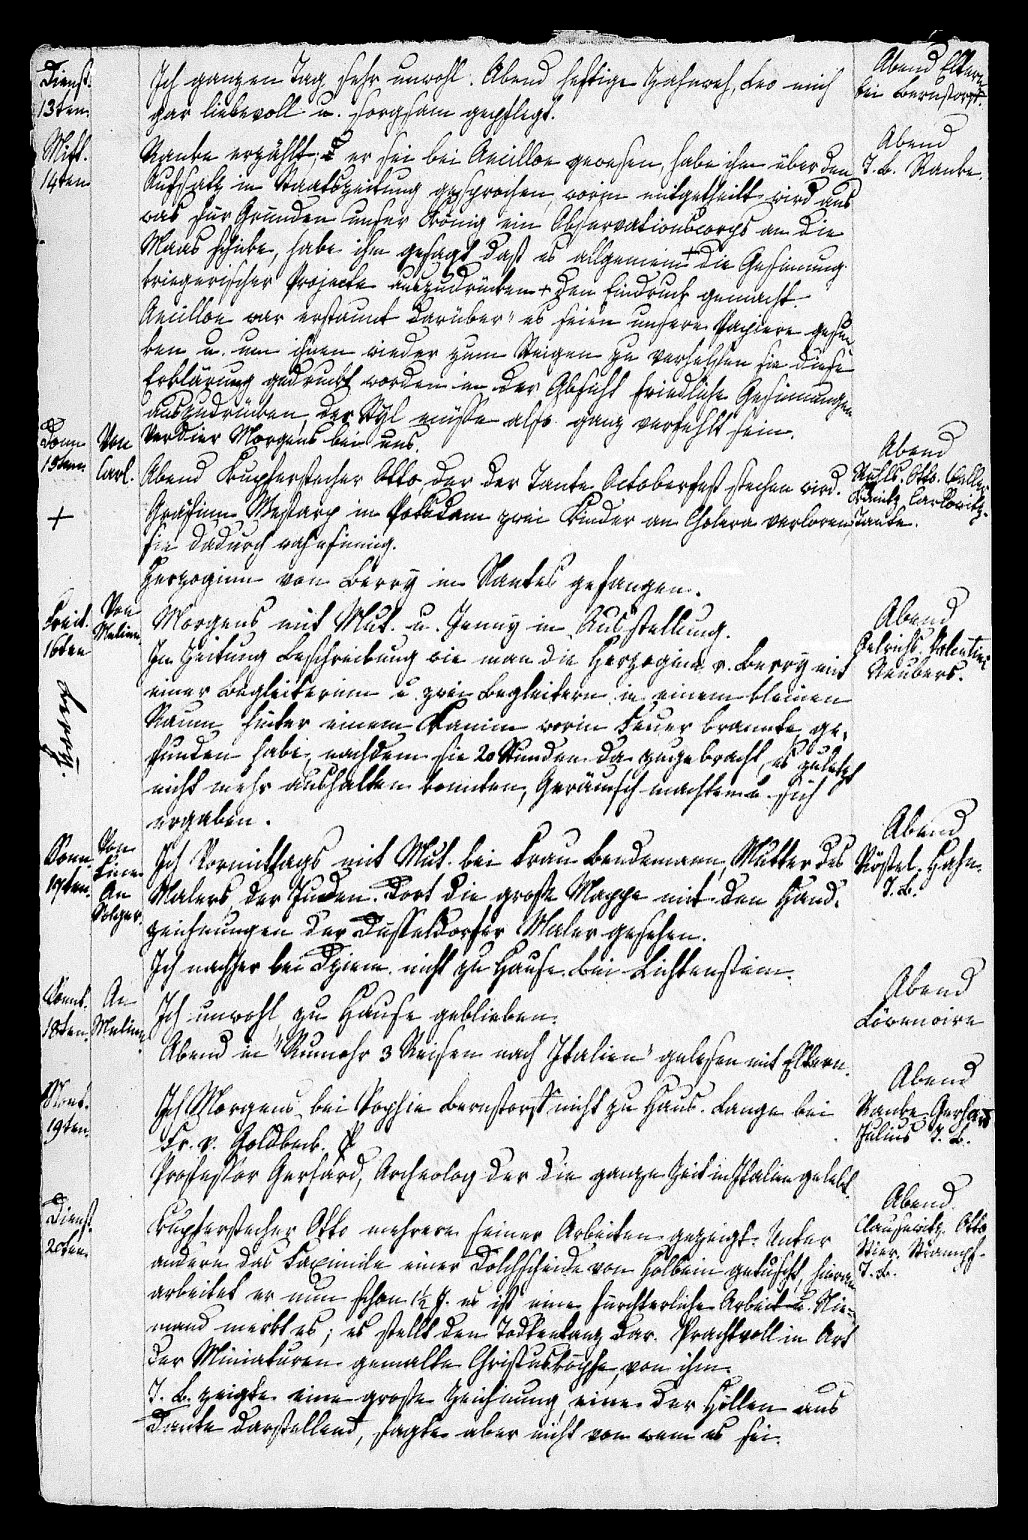 Dienst.
13ten
Ich ganzen Tag sehr unwohl. Abend heftige Zahnweh, Leo mich
gar liebevoll u. sorgsam gepflegt.
Abend Eltern
bei Bernstorff.
Mitt.
14ten
Ranke erzählt, er sei bei Ancillon gewesen, habe ihn über den
Aufsatz in Staatszeitung gesprochen, worin mitgetheilt wird aus
was für Gründen unser König ein Observationscorps an die
Maas schike, habe ihm gesagt daß es allgemein + die Gesinnung
kriegerischer Projecte auszudrücken + den Eindruck gemacht.
Ancillon war erstaunt darüber" es seien unsere Papiere gesun
ken u. um ihnen wieder zum Steigen zu verhelfen sei diese
Erklärung gedruckt worden in der Absicht friedliche Gesinnungen
auszudrücken, der Styl müsse also ganz verfehlt sein.
Abend
T. L. Ranke.
Donn
15ten
Von
Carl.
Verdier Morgens bei uns.
Abend Kupferstecher Otto der der Tante Octoberfest stechen wird.
Gräfinn Westarp in Potsdam zwei Kinder an Cholera verloren
sie dadurch wahnsinnig.
Herzoginn von Berry in Nantes gefangen.
Abend
Otto.
Carlowitz.
Tante.
+
Freit.
16ten
Von
Malinen
Morgens mit Mut. u. Jenny in Ausstellung.
In Zeitung Beschreibung wie man die Herzoginn v. Berry mit
einer Begleiterinn u. zwei Begleitern in einem kleinen
Raum hinter einem Kamin worin Feuer brannte, ge-
funden habe, nachdem sie 20 Stunden da zugebracht, es zuletzt
nicht mehr aushalten konnten, Geräusch machten u. sich
ergaben.
Abend
Neubers.
Sonn
17ten
Von
An
Solger.
Ich Vormittags mit Mut. bei Frau Bendemann, Mutter des
Malers der Juden. Dort die große Mappe mit den Hand-
zeichnungen der Düsseldorfer Maler gesehen.
Ich nachher bei nicht zu Hause. bei Lichtenstein.
Abend
Röstel, Hahn.
T. L.
Sonnt.
18ten
An
Malinen
Ich unwohl, zu Hause geblieben.
Abend in "Rumohr 3 Reisen nach Italien" gelesen mit Eltern.
Abend
Mont.
19ten
Ich Morgens bei Sophie Bernstorff nicht zu Haus. Lange bei
Fr. v. Goldbeck.
Professor Gerhard, Archeolog der die ganze Zeit in Italien gelebt.
Abend
Ranke Gerhard
Julius T. L.
Dienst.
20ten
Kupferstecher Otto mehrere seiner Arbeiten gezeigt. Unter
andern das Faximile einer Dolchscheide von Holbein getuscht, hieran
arbeitet er nun schon 1½ J. es ist eine fürchterliche Arbeit u. Nie-
mand merkt es; es stellt den Todtentanz dar. Prachtvoll in Art
der Miniaturen gemalte Christusköpfe, von ihm.
T. L. zeigte eine große Zeichnung eine der Höllen aus
Dante darstellend, sagte aber nicht von wem es sei.
Abend.
Clausewitz. Otto
Stier.
T. L.